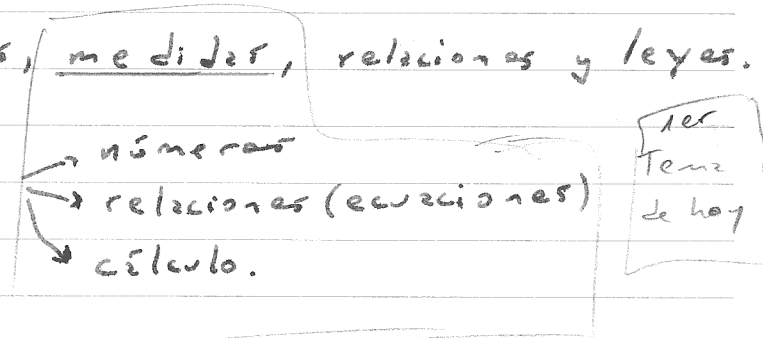 s, medidas, relaciones y leyes.
→ números
→ relaciones (ecuaciones)
→ cálculo.
1er
Tema
de hoy